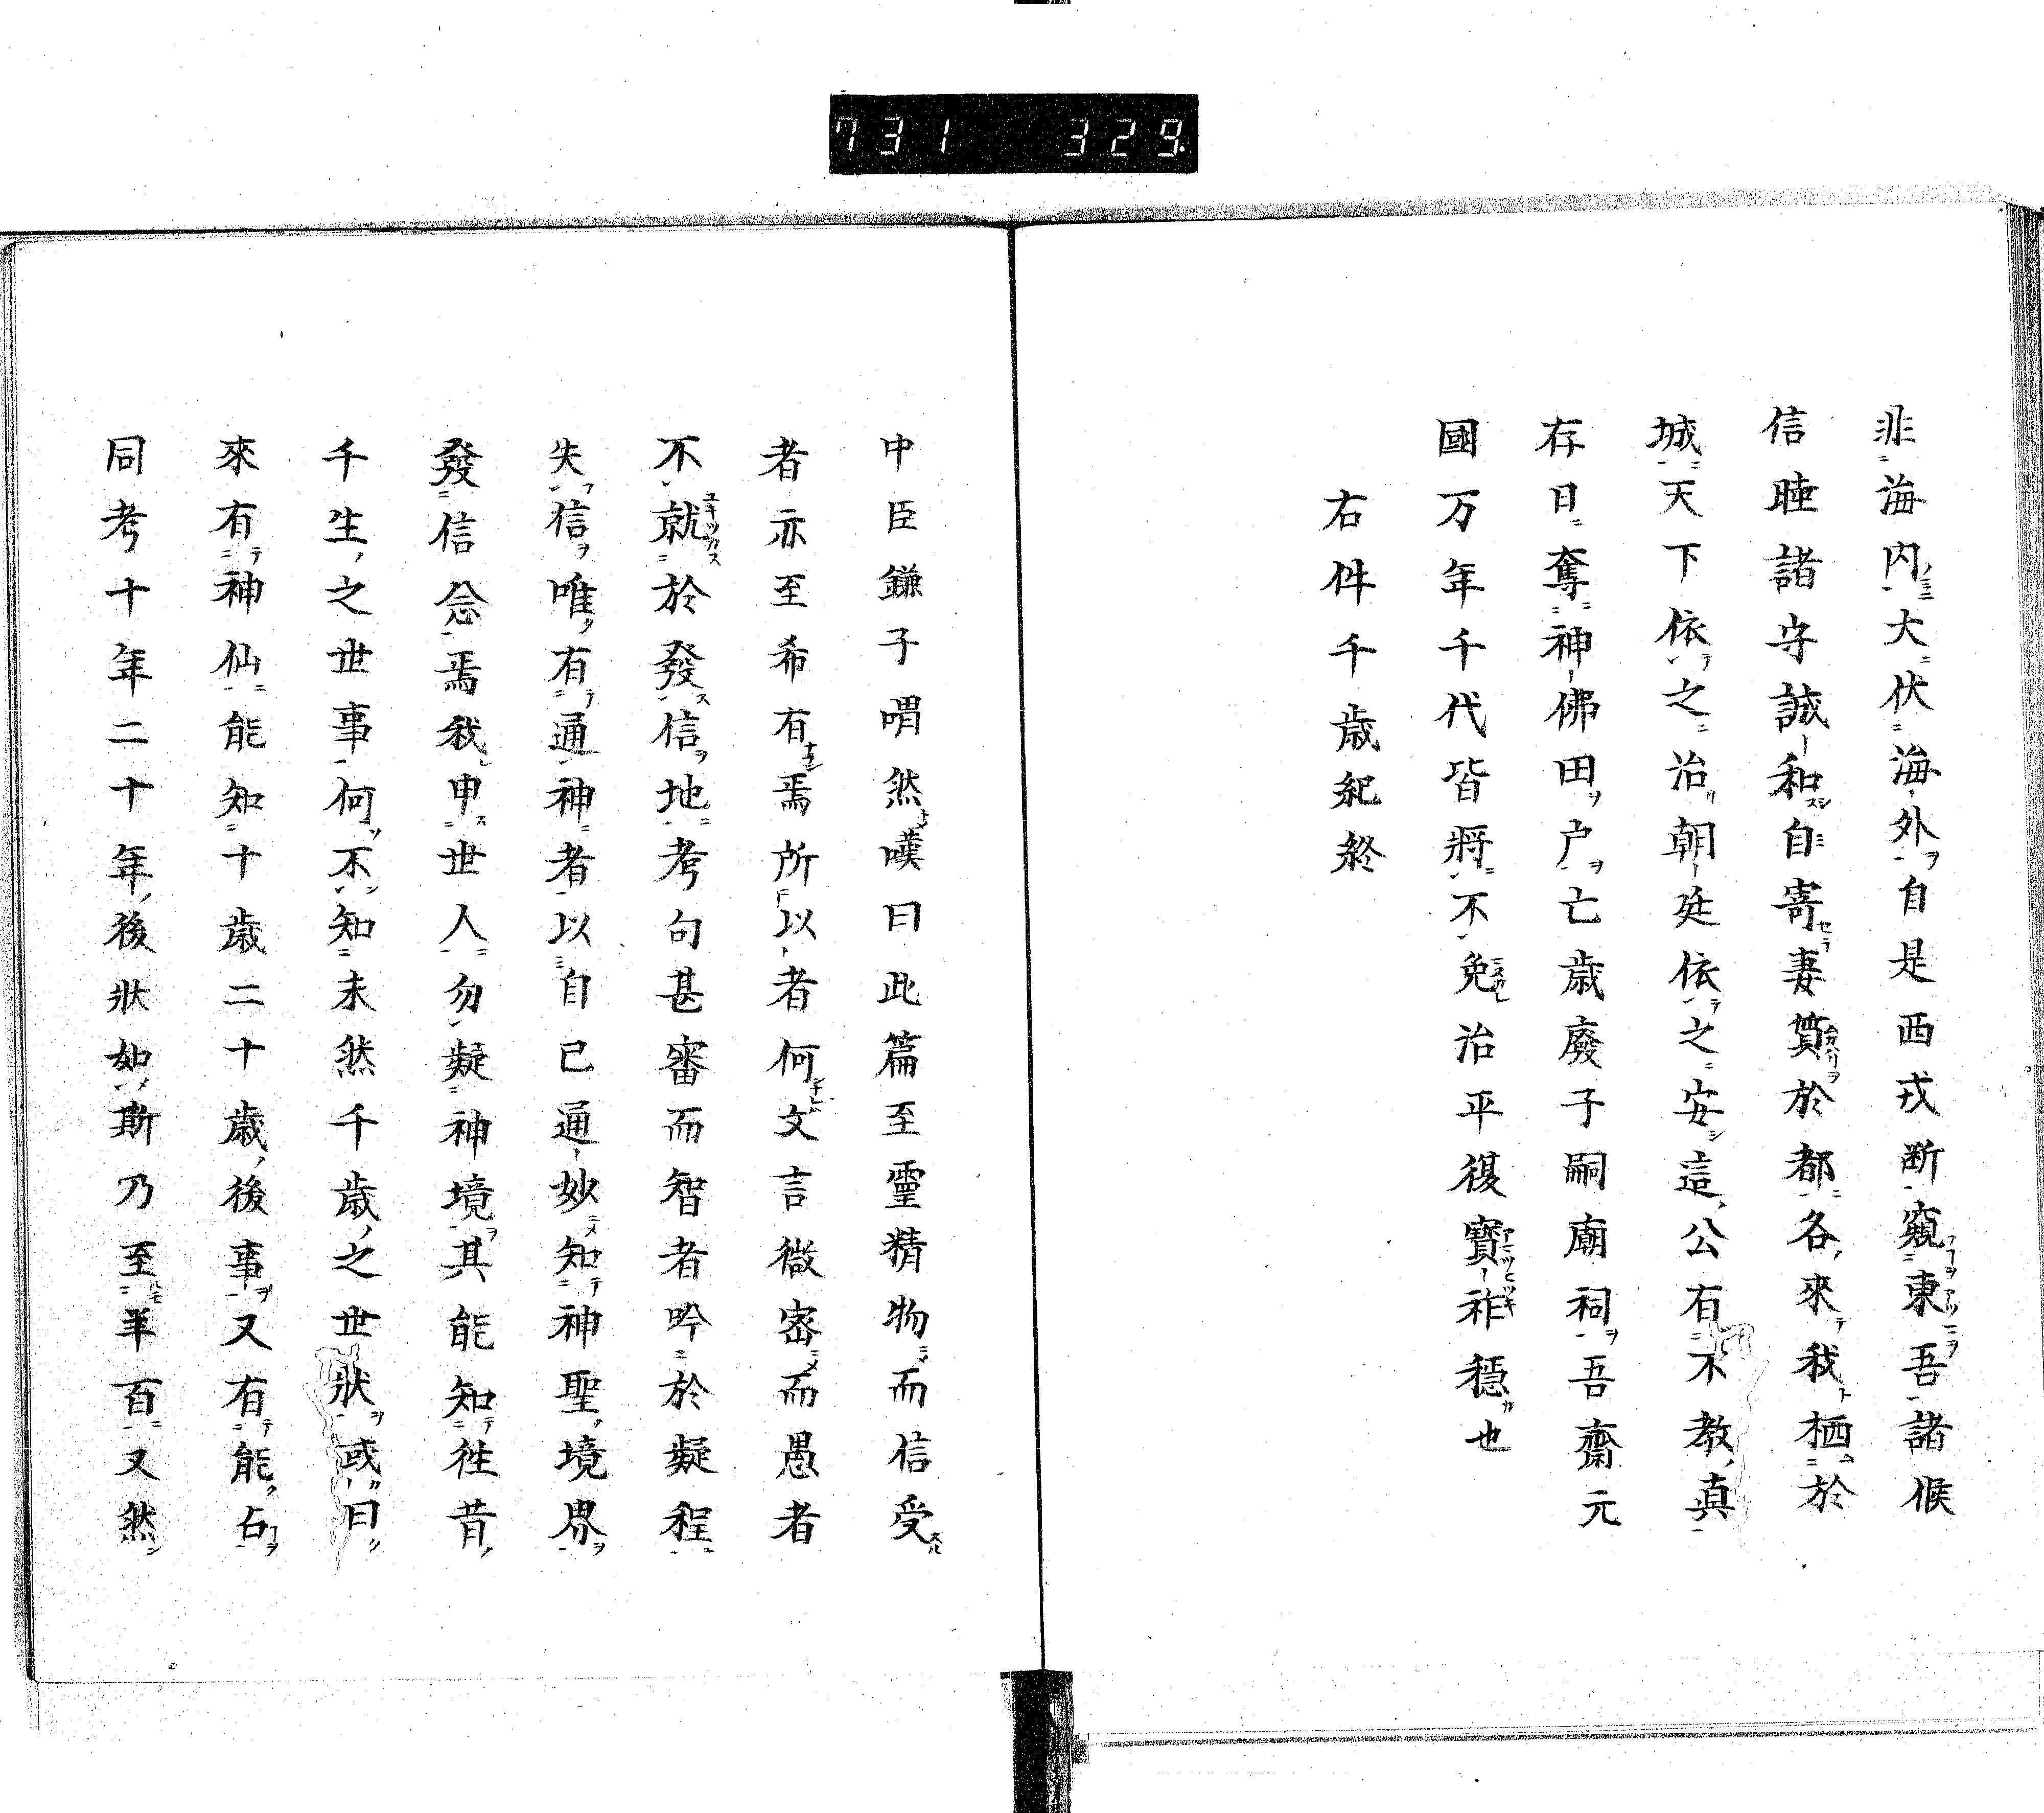 731 329
非海内大伏海外自是西戎断窺東吾諸候
信睦諸守誠和自寄妻質於都各來我栖於
城天下依之治朝廷依之安這公有不教真
存日奪神佛田戸亡歳廢子嗣廟祠吾齋元
國万年千代皆將不免治平復寳祚穏也
右件千歳紀終
中臣鎌子喟然嘆曰此篇至靈精物而信受
者亦至希有焉所以者何文言微密而愚者
不就於發信地考句甚審而智者吟於凝程
失信唯有通神者以自己通妙知神聖境界
發信念焉我申世人勿凝神境其能知徃昔
千生之世事何不知未然千歳之世状或曰
來有神仙能知十歳二十歳後事又有能占
同考十年二十年後状如斯乃至半百又然